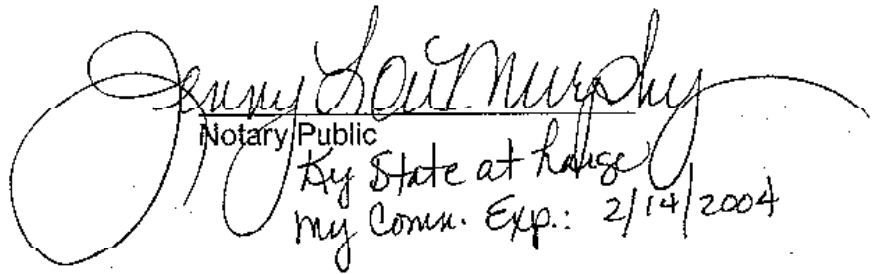 Jenny Lou Murphy
Notary Public
Ky State at Large
My Comm. Exp.: 2/14/2004